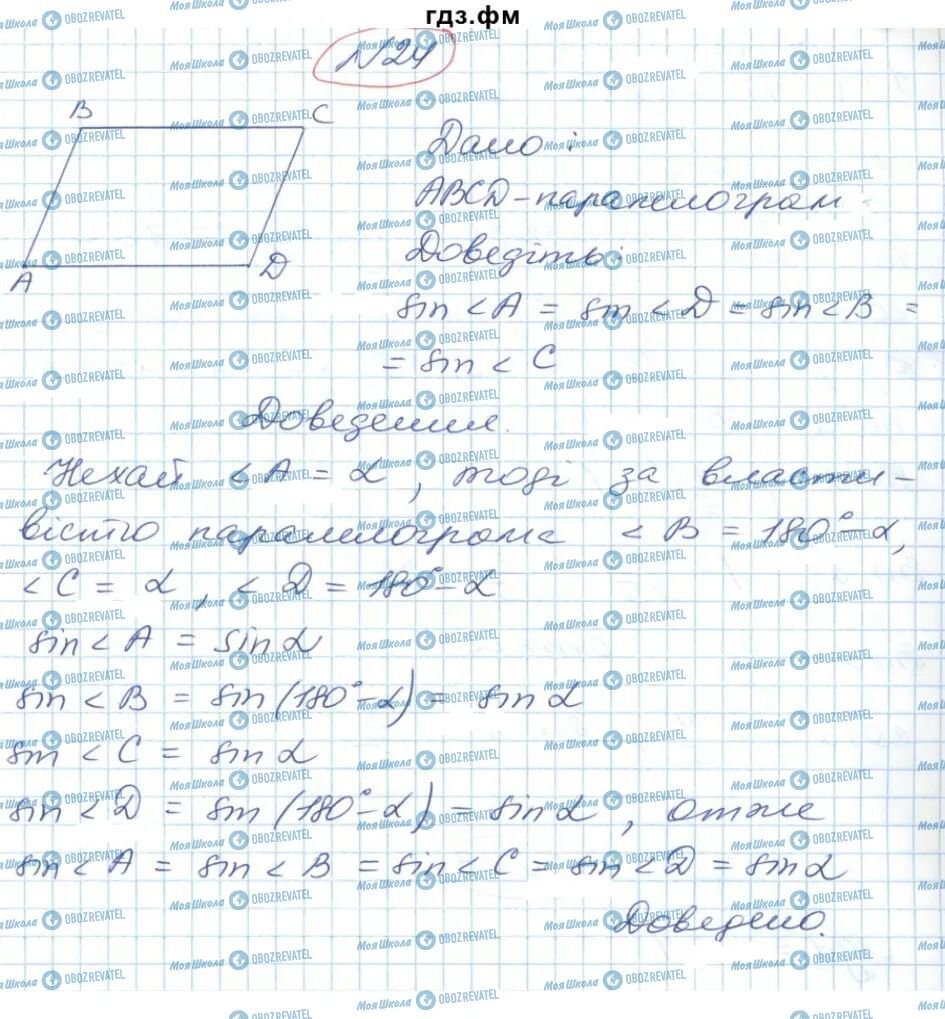 гдз.фм
№24
B C
A D
Дано:
ABCD - паралелограм
Доведіть:
sin < A = sin < D = sin < B =
= sin < C
Доведення.
Нехай < A = α, тоді за власти-
вістю паралелограма < B = 180° - α,
< C = α, < D = 180° - α
sin < A = sin α
sin < B = sin (180° - α) = sin α
sin < C = sin α
sin < D = sin (180° - α) = sin α, отже
sin < A = sin < B = sin < C = sin < D = sin α
Доведено.
МояШкола OBOZREVATEL